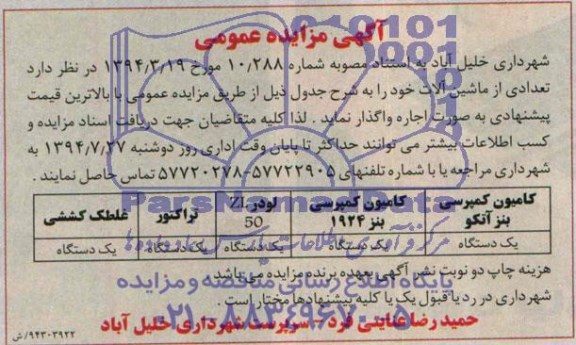 آگهی مزایده عمومی
شهرداری خلیل آباد به استناد مصوبه شماره ۱۰٫۲۸۸ مورخ ۱۳۹۴٫۳٫۱۹ در نظر دارد
تعدادی از ماشین آلات خود را به شرح جدول ذیل از طریق مزایده عمومی با بالاترین قیمت
پیشنهادی به صورت اجاره واگذار نماید . لذا کلیه متقاضیان جهت دریافت اسناد مزایده و
کسب اطلاعات بیشتر می توانند حداکثر تا پایان وقت اداری روز دوشنبه ۱۳۹۴٫۷٫۲۷ به
شهرداری مراجعه یا با شماره تلفنهای ۵۷۷۲۲۹۰۵-۵۷۷۲۰۲۷۸ تماس حاصل نمایند .
کامیون کمپرسی بنز آتکو
کامیون کمپرسی بنز ۱۹۲۴
لودر ZL 50
تراکتور
غلطک کششی
یک دستگاه
یک دستگاه
یک دستگاه
یک دستگاه
یک دستگاه
هزینه چاپ دو نوبت نشر آگهی بعهده برنده مزایده می باشد
شهرداری در رد یا قبول یک یا کلیه پیشنهادها مختار است .
حمید رضا عنایتی فرد - سرپرست شهرداری خلیل آباد
۹۴۳۰۳۹۲۲/ش
ParsNamadData
پایگاه اطلاع رسانی مناقصه و مزایده
۰۲۱-۸۸۳۴۹۶۷۰-۵